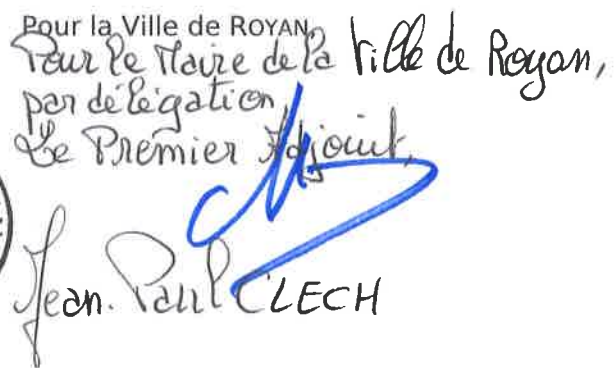 Pour la Ville de ROYAN,
Pour le Maire de la Ville de Royan,
par délégation,
Le Premier Adjoint,
Jean-Paul CLECH